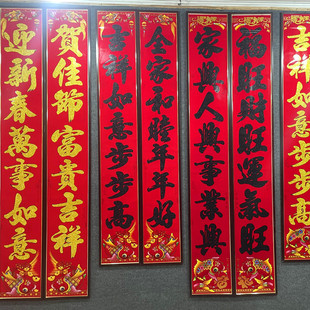 吉祥如意步步高
福旺財旺運氣旺
家興人興事業興
全家和睦年年好
吉祥如意步步高
賀佳節富貴吉祥
迎新春萬事如意